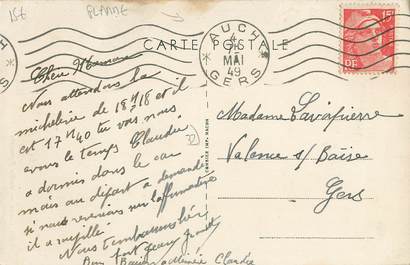 15€ PLANNE
CARTE POSTALE
AUCH
4
MAI
49
GERS
15F
RF
Chère Maman
Nous attendons la
micheline de 18h18 et il
est 17h40 tu vois nous
avons le temps Claudie
a dormi dans le car
mais au départ a demandé
si nous revenions
il a
Nous t'embrassons
Bien fort
Claudie
Madame Lavapierre
Valence s/ Baïse
Gers